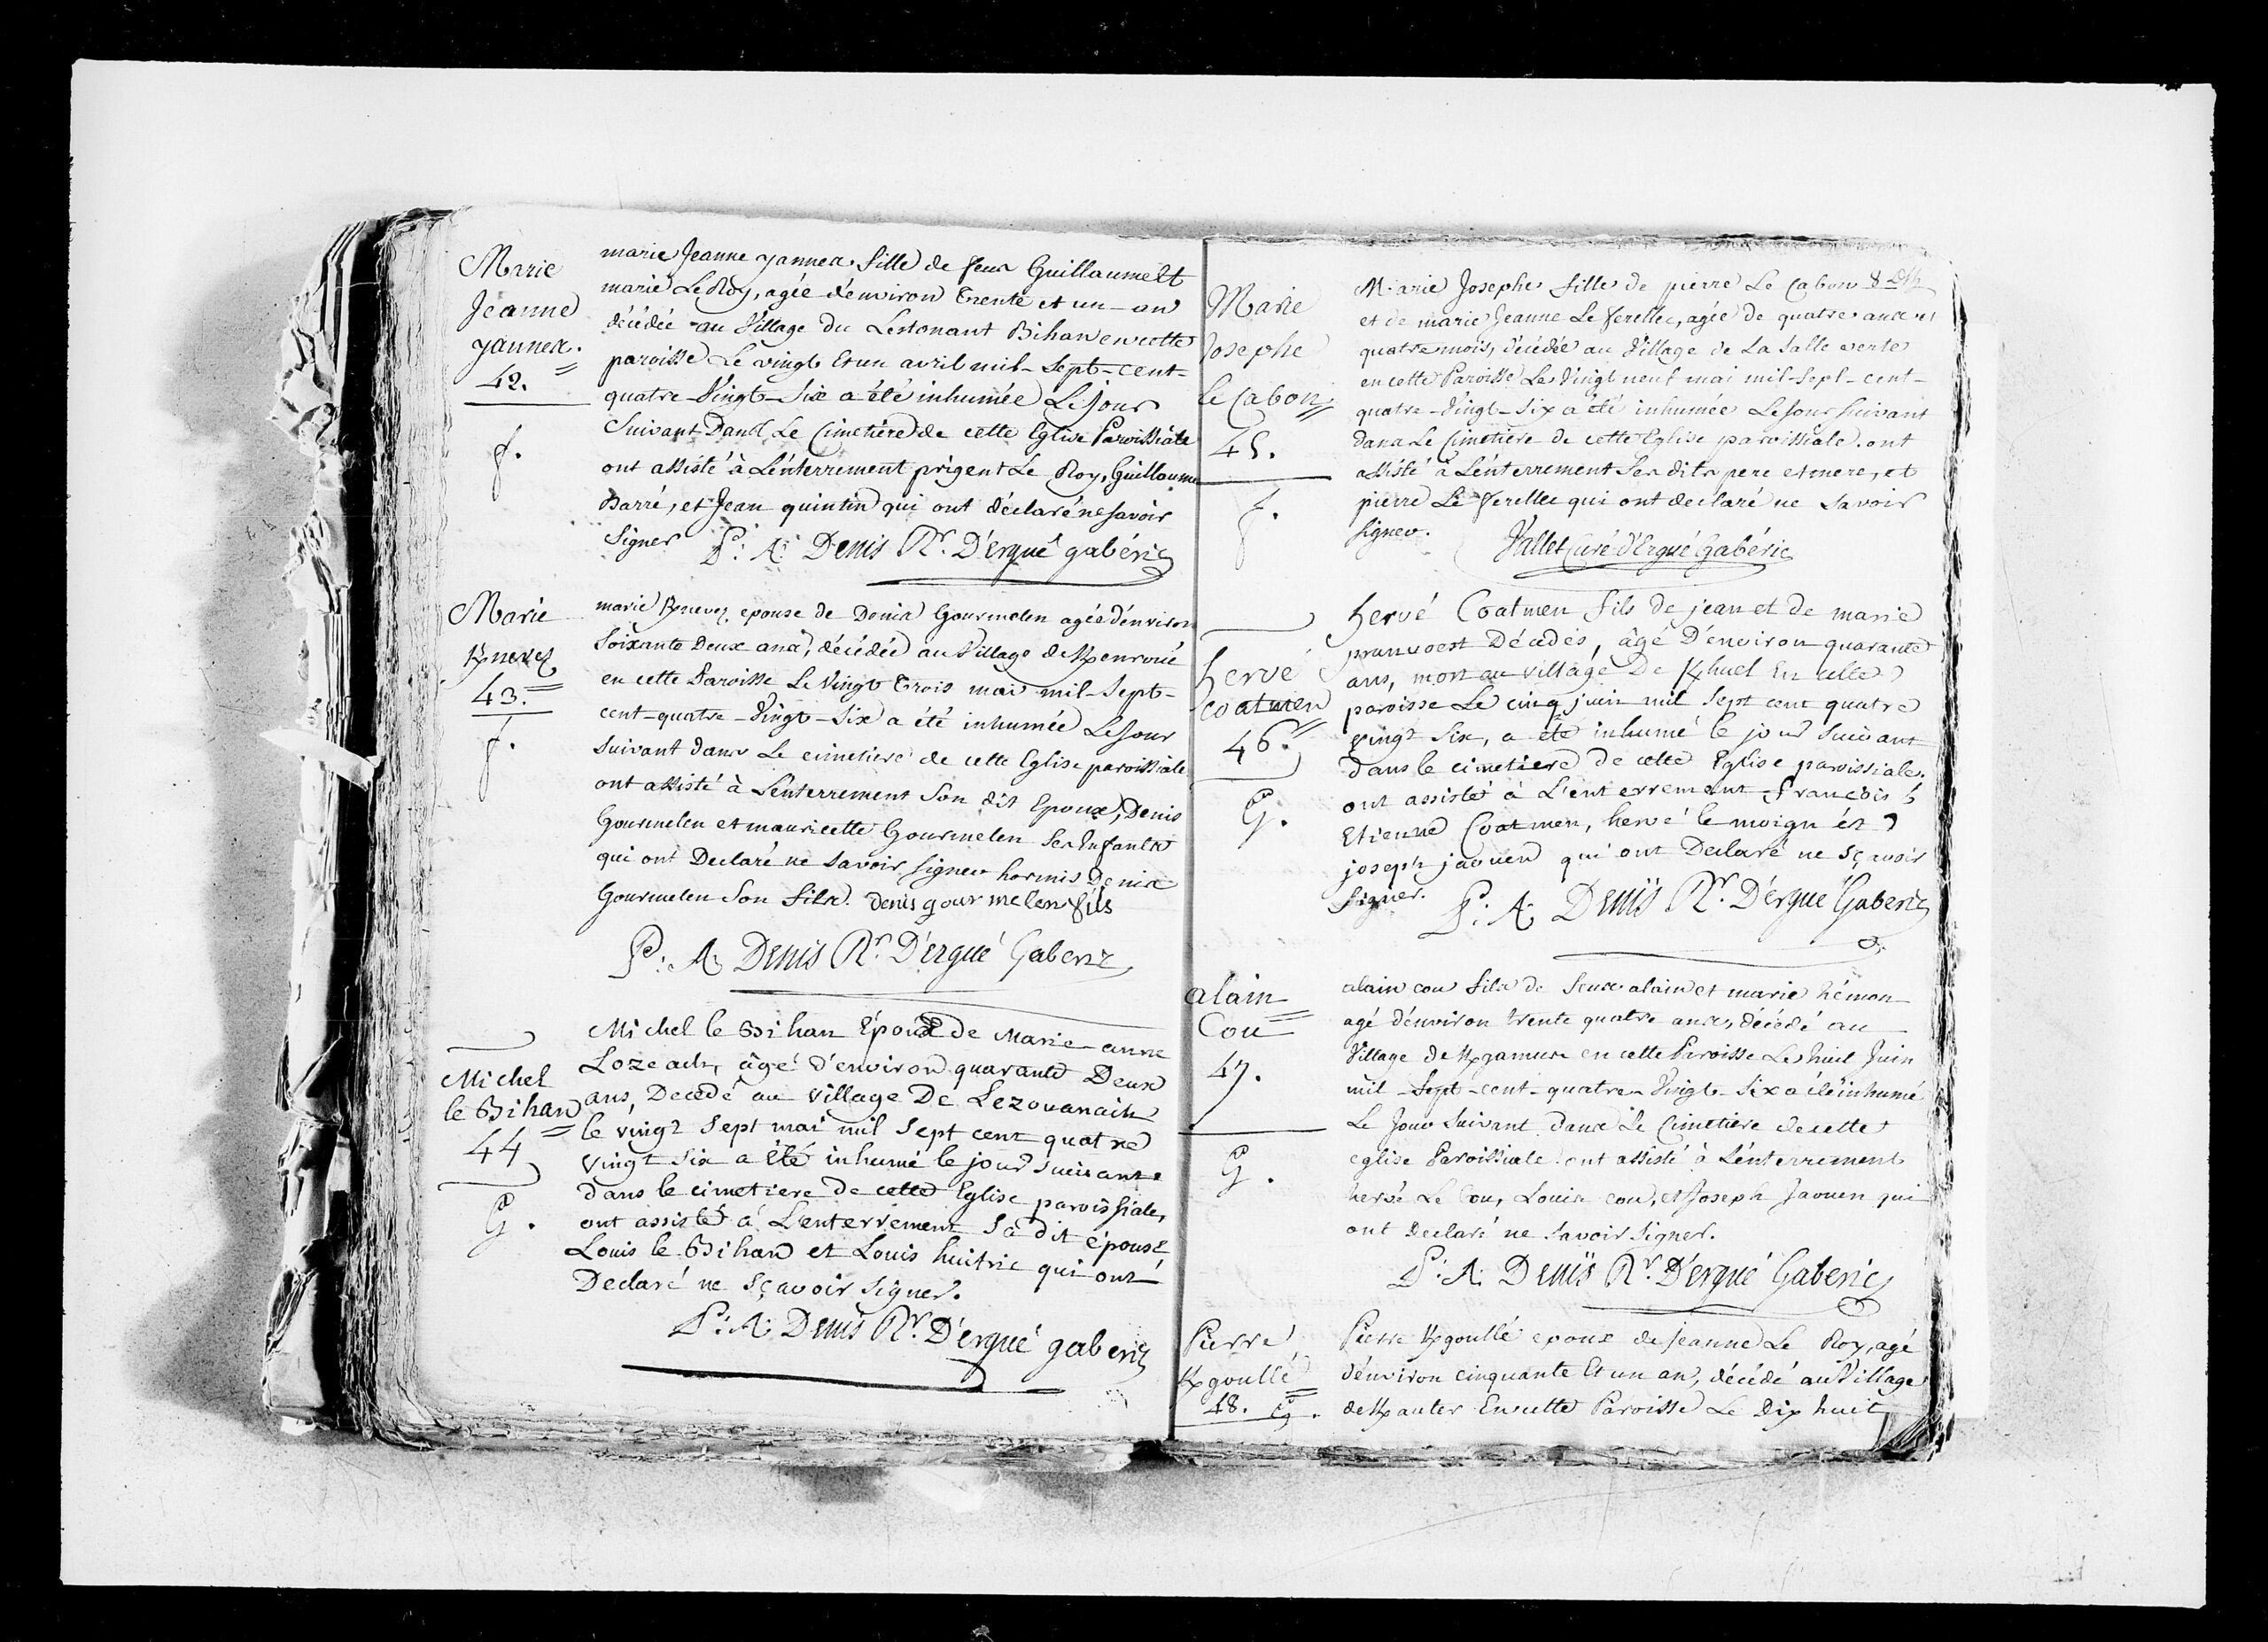 Marie
Jeanne
yannex.
42.
f.
marie Jeanne yannex fille de feux Guillaume et
marie Le Roy, agée d'environ trente et un an
décédée au Village du Lestonant Bihan en cette
paroisse Le vingt et un avril mil-sept-cent-
quatre-Vingt-Six a été inhumée Le Jour
Suivant Dans Le Cimetière de cette Eglise Paroissiale
ont assisté à L'enterrement prigent Le Roy, Guillaume
Barré, et Jean quintin qui ont déclaré ne savoir
Signer P: A: Denis Rr. D'ergué gabéric
Marie
Kneves
43.
f.
marie Knevez epouse de Denis Gourmelen agée d'environ
Soixante Deux ans, décédée au Village de Kenvoué
en cette Paroisse Le Vingt Trois mai mil-Sept-
cent-quatre-Vingt-Six a été inhumée Le Jour
Suivant dans Le cimetiere de cette Eglise paroissiale
ont assisté à L'enterrement Son dit Epoux, Denis
Gourmelen et mauricette Gourmelen Ses Enfants
qui ont Declaré ne savoir signer hormis Denis
Gourmelen Son fils. Denis gourmelen fils
P: A: Denis Rr. D'ergué Gaberic
Michel
le Bihan
44
G.
Michel le Bihan Époux de Marie-anne
Lozeach, âgé d'environ quarante Deux
ans, Decedé au village De Lezouanach
le vingt Sept mai mil Sept cent quatre
vingt six a été inhumé le jour suivant
dans le cimetiere de cette Eglise paroissiale,
ont assisté à L'enterrement Sa dit épouse
Louis le Bihan et Louis huitric qui ont
Declaré ne sçavoir signer.
P: A: Denis Rr. D'ergué gaberic
Marie
Josephe
Le Cabon
45.
f.
Marie Josephe fille de pierre Le Cabon
et de marie Jeanne Le ferellec, agée de quatre ans et
quatre mois, décédée au Village de La Salle verte
en cette Paroisse Le Vingt neuf mai mil-Sept-cent-
quatre-Vingt-Six a été inhumée Le Jour Suivant
dans Le Cimetiere de cette Eglise paroissiale. ont
assisté à L'enterrement Ses dits pere et mere, et
pierre Le ferellec qui ont declaré ne savoir
signer. Vallet Curé d'Ergué Gabéric
hervé
Coatmen
46.
G.
hervé Coatmen fils de jean et de marie
Décedés, âgé D'environ quarante
ans, mort au village De Khuel En cette
paroisse Le cinq juin mil Sept cent quatre
vingt Six, a été inhumé le jour suivant
dans le cimetiere De cette Eglise paroissiale.
ont assisté à L'enterrement françois &
Etienne Coatmen, hervé le moign et
joseph jaouen qui ont Declaré ne sçavoir
signer. P: A: Denis Rr. D'ergué Gaberic
alain
Cou
47.
G.
alain cou fils de feux alain et marie hémon
agé d'environ trente quatre ans, décédé au
Village de Kgamus en cette Paroisse Le huit Juin
mil-Sept-cent-quatre-Vingt-Six a été inhumé
Le Jour Suivant Dans Le Cimetiere de cette
eglise Paroissiale. ont assisté à L'enterrement
hervé Le Cou, Louis cou, et Joseph Jaouen qui
ont Declaré ne savoir signer.
P: A: Denis Rr. D'ergué Gaberic
Pierre
Kgoullé
48. G.
Pierre Kgoullé epoux de Jeanne Le Roy, agé
d'environ cinquante Et un an, décédé au Village
de Kauter En cette Paroisse Le Dix huit